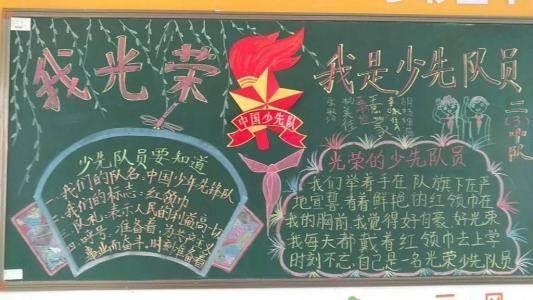 我光荣
我是少先队员
中国少先队
二(3)中队
少先队员要知道
一、我们的队名:中国少年先锋队
二、我们的标志:红领巾
三、队礼:表示人民的利益高于一切
四、呼号:准备着,为共产主义
事业而奋斗,时刻准备着
光荣的少先队员
我们举着手在队旗下庄严
地宣誓看着鲜艳的红领巾在
我的胸前我觉得好自豪好光荣
我每天都戴着红领巾去上学
时刻不忘自己是一名光荣少先队员